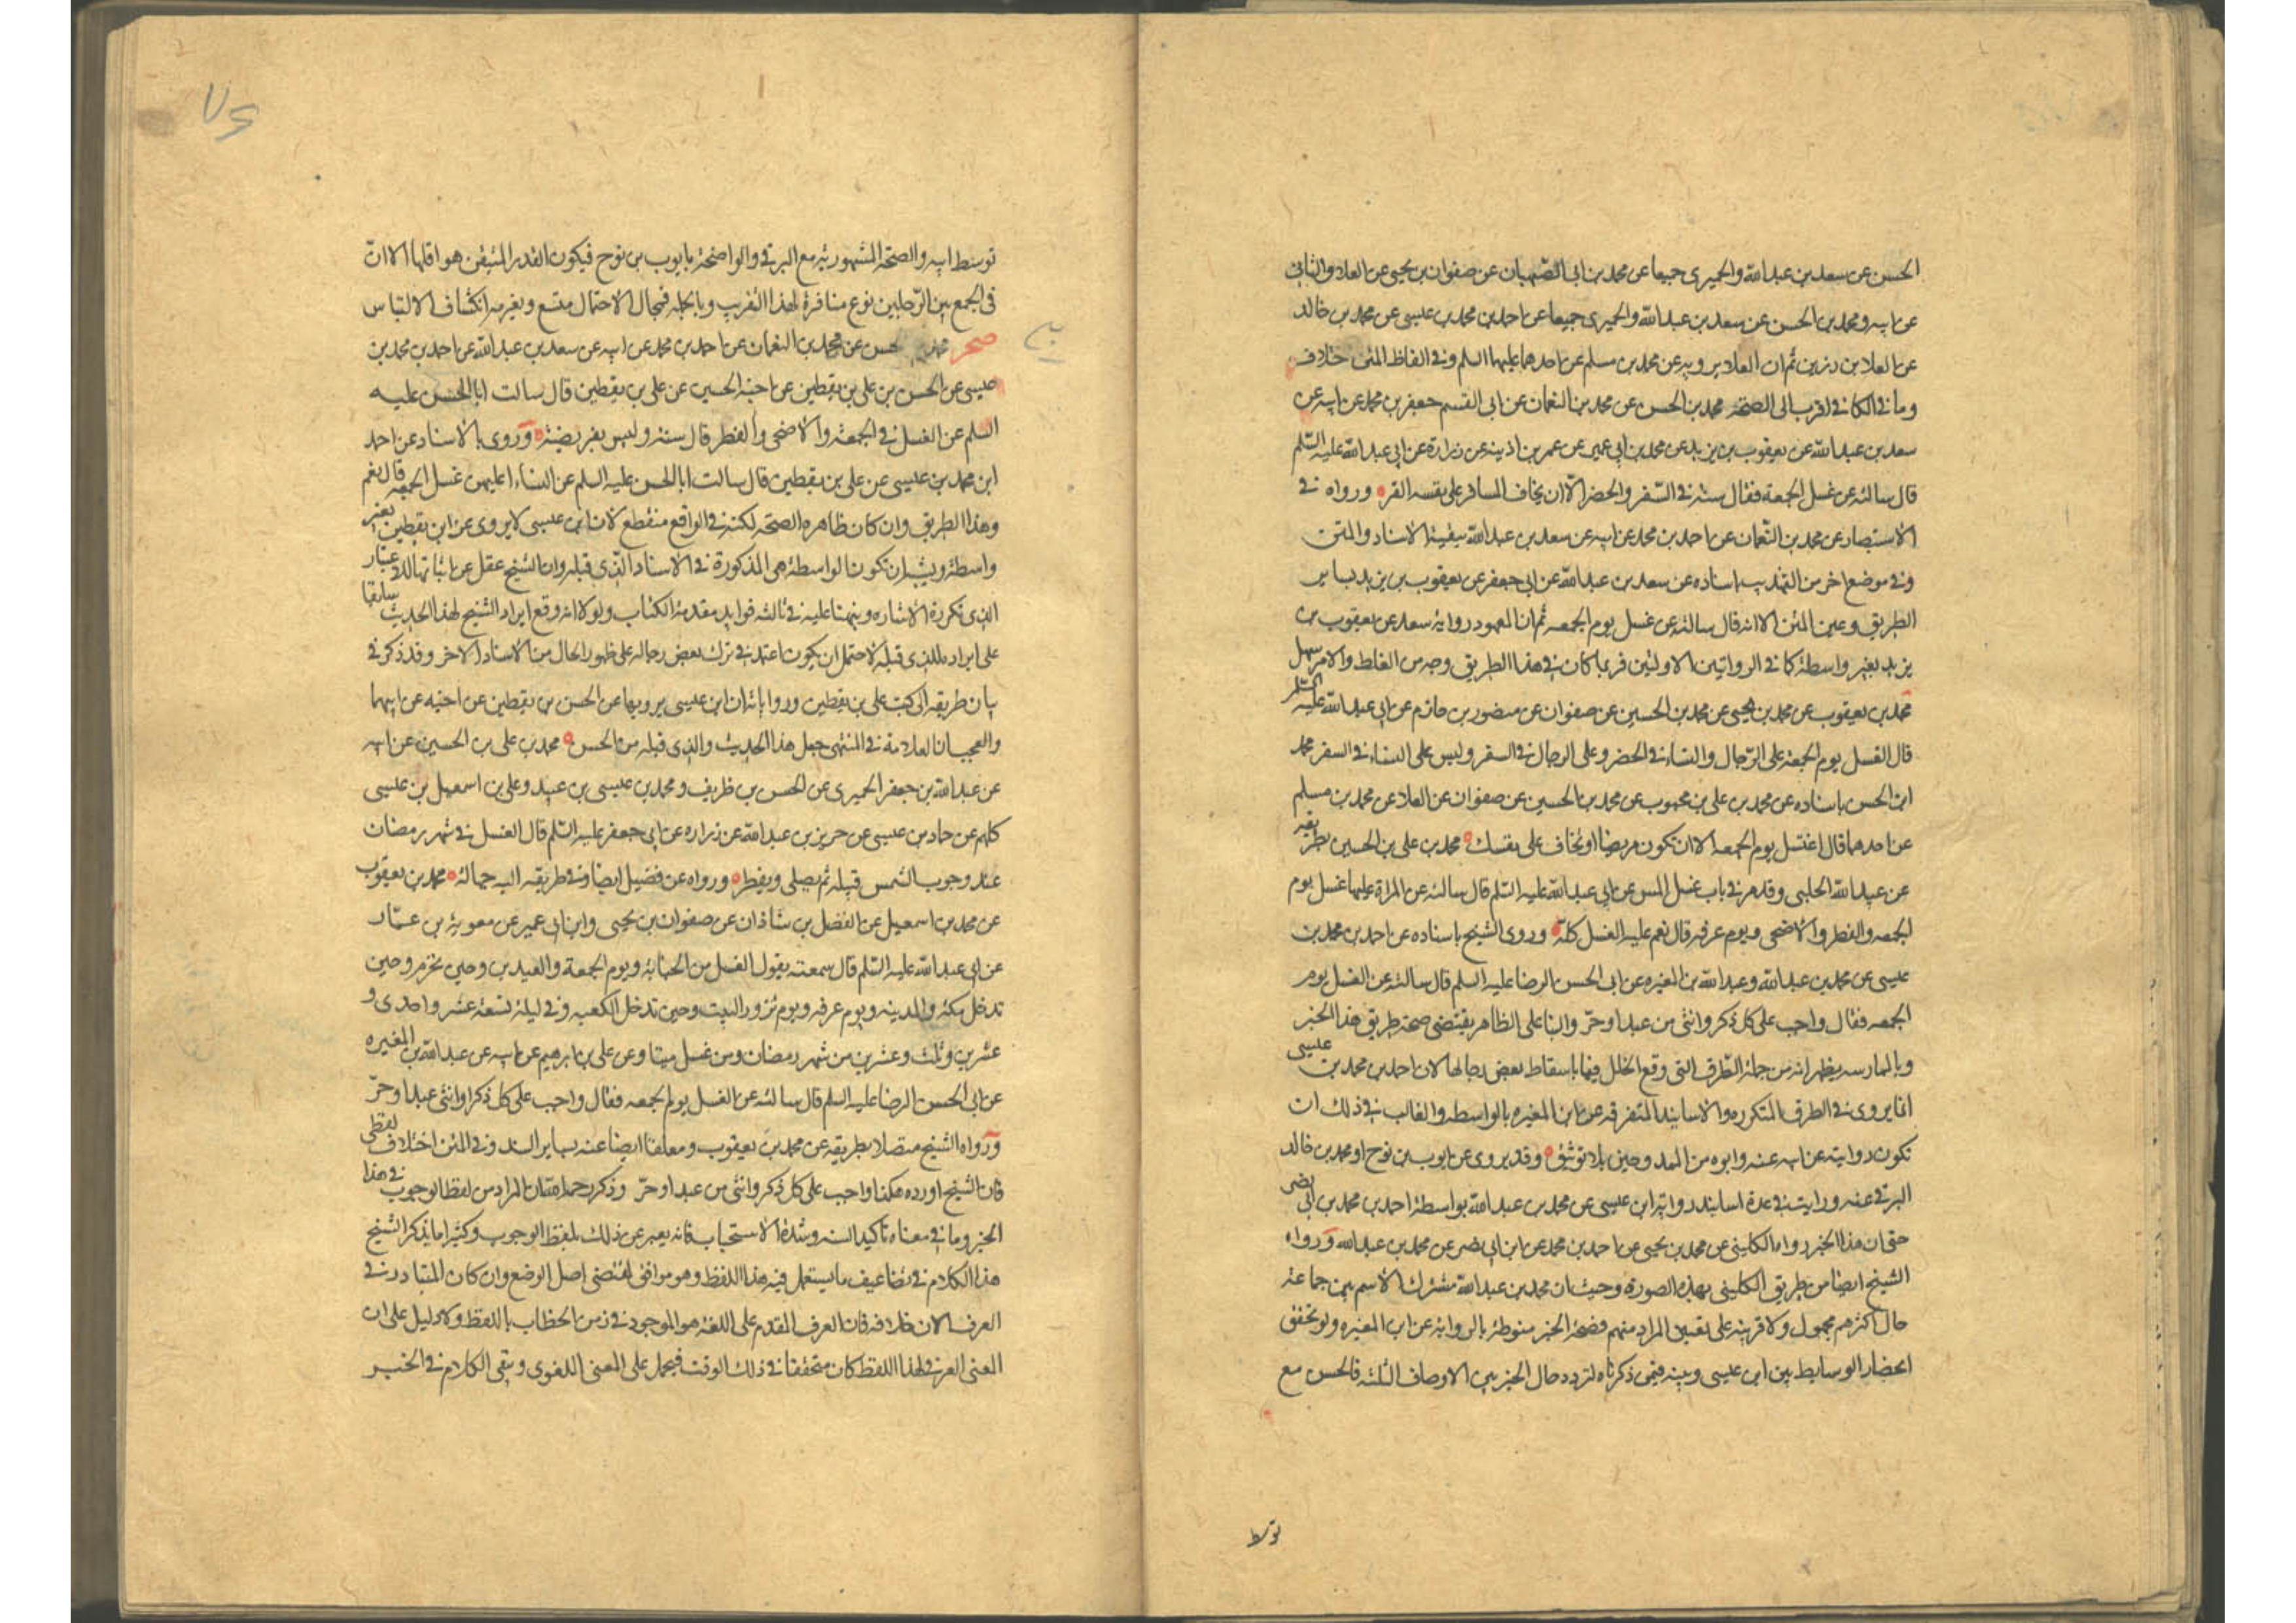 الحسن عن سعد بن عبد الله والحميرى جميعا عن محمد بن ابى الصهبان عن صفوان بن يحيى عن العلا والثانى
عن ابيه ومحمد بن الحسن عن سعد بن عبد الله والحميرى جميعا عن احمد بن محمد بن عيسى عن محمد بن خالد
عن العلا بن رزين ثم ان العلا يرويه عن محمد بن مسلم عن احدهما عليهما السلم وفى الفاظ المتن خلاف
وما فى الكافى اقرب الى الصحة محمد بن الحسن عن محمد بن النعمان عن ابى القسم جعفر بن محمد عن ابيه عن
سعد بن عبد الله عن يعقوب بن يزيد عن محمد بن ابى عمير عن عمر بن اذينه عن زرارة عن ابى عبد الله عليه السلم
قال سالته عن غسل الجمعة فقال سنة فى السفر والحضر الا ان يخاف المسافر على نفسه القر ورواه فى
الاستبصار عن محمد بن النعمان عن احمد بن محمد عن ابيه عن سعد بن عبد الله ببقية الاسناد والمتن
وفى موضع اخر من التهذيب باسناده عن سعد بن عبد الله عن ابى جعفر عن يعقوب بن يزيد بساير
الطريق وعين المتن الا انه قال سالته عن غسل يوم الجمعه ثم ان المعهود رواية سعد عن يعقوب بن
يزيد بغير واسطة كما فى الروايتين الاولتين فربما كان فى هذا الطريق وجه من الغلط والامر سهل
محمد بن يعقوب عن محمد بن يحيى عن محمد بن الحسين عن صفوان عن منصور بن حازم عن ابى عبد الله عليه السلم
قال الغسل يوم الجمعة على الرجال والنساء فى الحضر وعلى الرجال فى السفر وليس على النساء فى السفر محمد
ابن الحسن باسناده عن محمد بن على بن محبوب عن محمد بن الحسين عن صفوان عن العلا عن محمد بن مسلم
عن احدهما قال اغتسل يوم الجمعه الا ان تكون مريضا او تخاف على نفسك محمد بن على بن الحسين بطريقه
عن عبيد الله الحلبى وقد مر فى باب غسل المس عن ابى عبد الله عليه السلم قال سالته عن المراة عليها غسل يوم
الجمعه والفطر والاضحى ويوم عرفه قال نعم عليها الغسل كله وروى الشيخ باسناده عن احمد بن محمد بن
عيسى عن محمد بن عبد الله وعبد الله بن المغيره عن ابى الحسن الرضا عليه السلم قال سالته عن الغسل يوم
الجمعه فقال واجب على كل ذكر وانثى من عبد او حر والبنا على الظاهر يقتضى صحة طريق هذا الخبر
وبالممارسه يظهر انه من جملة الطرق التى وقع الخلل فيها باسقاط بعض رجالها لان احمد بن محمد بن عيسى
انما يروى فى الطرق المتكرره والاسانيد المتفرقه عن ابن المغيره بالواسطه والغالب فى ذلك ان
تكون روايته عن ابيه عنه وابوه من الممدوحين بلا توثيق وقد يروى عن ايوب بن نوح او محمد بن خالد
البرقى عنه ورايت فى عدة اسانيد رواية ابن عيسى عن محمد بن عبد الله بواسطة احمد بن محمد بن ابى نصر
حتى ان هذا الخبر رواه الكلينى عن محمد بن يحيى عن احمد بن محمد عن ابن ابى نصر عن محمد بن عبد الله ورواه
الشيخ ايضا من طريق الكلينى بهذه الصورة وحيث ان محمد بن عبد الله مشترك الاسم بين جماعة
حال اكثرهم مجهول ولا قرينة على تعيين المراد منهم فصحة الخبر منوطة بالرواية عن ابن المغيره ولو تحقق
انحصار الوسايط بين ابن عيسى وبينه فيمن ذكرناه لتردد حال الخبر بين الاوصاف الثلثه فالحسن مع
توسط
توسط ابيه والصحة المشهورية مع البرقى والواضحة بايوب بن نوح فيكون القدر المتيقن هو اقلها الا ان
فى الجمع بين الرجلين نوع منافرة لهذا التقريب وبالجمله فمجال الاحتمال متسع وبغيرمه انكشاف الالتباس
صحر محمد بن الحسن عن محمد بن النعمان عن احمد بن محمد عن ابيه عن سعد بن عبد الله عن احمد بن محمد بن
عيسى عن الحسن بن على بن يقطين عن اخيه الحسين عن على بن يقطين قال سالت ابا الحسن عليه
السلم عن الغسل فى الجمعة والاضحى والفطر قال سنة وليس بفريضة وروى بالاسناد عن احمد
ابن محمد بن عيسى عن على بن يقطين قال سالت ابا الحسن عليه السلم عن النساء اعليهن غسل الجمعه قال نعم
وهذا الطريق وان كان ظاهره الصحة لكنه فى الواقع منقطع لان ابن عيسى لا يروى عن ابن يقطين بغير
واسطة ويشبه ان تكون الواسطة هى المذكورة فى الاسناد الذى قبله وان الشيخ غفل عن اثباتها للاعتبار
الذى تكررة الاشاره ونبهنا عليه فى ثالثه فوايد مقدمة الكتاب ولولا انه وقع ايراد الشيخ لهذا الحديث سابقا
على ايراده للذى قبله لاحتمل ان يكون اعتمد فى ترك بعض رجاله على ظهور الحال من الاسناد الاخر وقد ذكر فى
بيان طريقه الى كتب على بن يقطين ورواياته ان ابن عيسى يرويها عن الحسن بن يقطين عن اخيه عن ابيهما
والعجب ان العلامة فى المنتهى جعل هذا الحديث والذى قبله من الحسن محمد بن على بن الحسين عن ابيه
عن عبد الله بن جعفر الحميرى عن الحسن بن ظريف ومحمد بن عيسى بن عبيد وعلى بن اسمعيل بن عيسى
كلهم عن حماد بن عيسى عن حريز بن عبد الله عن زراره عن ابى جعفر عليه السلم قال الغسل فى شهر رمضان
عند وجوب الشمس قبيله ثم يصلى ويفطر ورواه عن فضيل ايضا وفى طريقه اليه جهالة محمد بن يعقوب
عن محمد بن اسمعيل عن الفضل بن شاذان عن صفوان بن يحيى وابن ابى عمير عن معوية بن عمار
عن ابى عبد الله عليه السلم قال سمعته يقول الغسل من الجنابة ويوم الجمعة والعيدين وحين تحرم وحين
تدخل مكة والمدينه ويوم عرفه ويوم تزور البيت وحين تدخل الكعبه وفى ليلة تسعة عشر واحدى و
عشرين وثلث وعشرين من شهر رمضان ومن غسل ميتا وعن على بن ابرهيم عن ابيه عن عبد الله بن المغيره
عن ابى الحسن الرضا عليه السلم قال سالته عن الغسل يوم الجمعه فقال واجب على كل ذكر او انثى عبد او حر
ورواه الشيخ متصلا بطريقه عن محمد بن يعقوب ومعلقا ايضا عنه بساير السند وفى المتن اختلاف لفظى
فان الشيخ اورده هكذا واجب على كل ذكر وانثى من عبد او حر وذكر رحمه الله ان المراد من لفظ الوجوب فى هذا
الخبر وما فى معناه تاكيد السنه وشدة الاستحباب فانه يعبر عن ذلك بلفظ الوجوب وكثيرا ما يذكر الشيخ
هذا الكلام فى تضاعيف ما يستعمل فيه هذا اللفظ وهو موافق لمقتضى اصل الوضع وان كان المتبادر فى
العرف الان خلافه فان العرف المقدم على اللغة هو الموجود فى زمن الخطاب باللفظ ولا دليل على ان
المعنى العرفى لهذا اللفظ كان متحققا فى ذلك الوقت فيحمل على المعنى اللغوى ويبقى الكلام فى الخبر